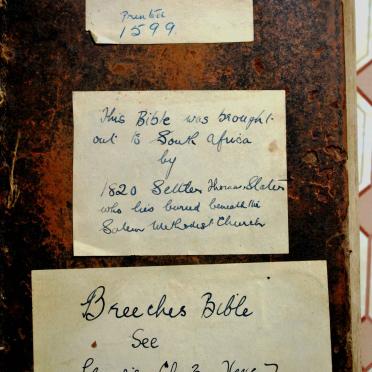 Printed
1599.
This Bible was brought
out to South Africa
by
1820 Settler Thomas Slater
who lies buried beneath the
Salem Methodist Church
Breeches Bible
See
Genesis Ch 3 Verse 7